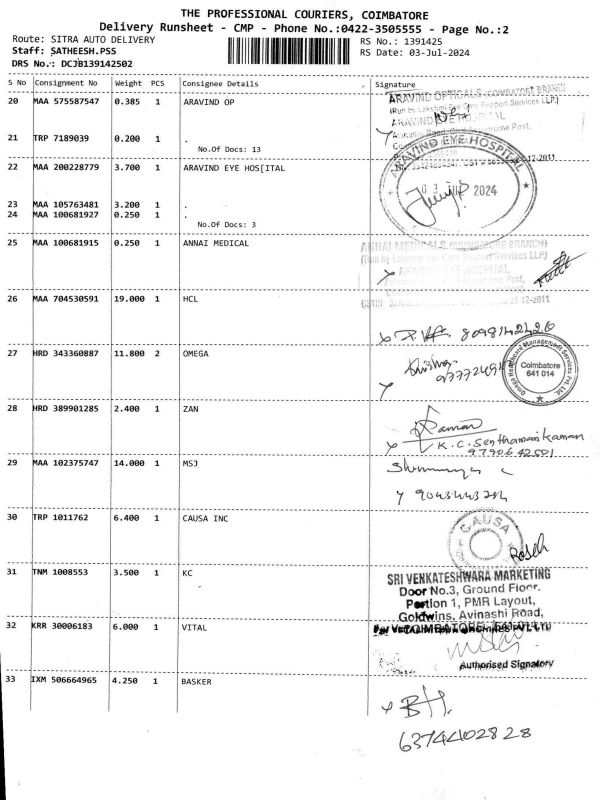 THE PROFESSIONAL COURIERS, COIMBATORE
Delivery Runsheet - CMP - Phone No.:0422-3505555 - Page No.:2
Route: SITRA AUTO DELIVERY
RS No.: 1391425
Staff: SATHEESH.PSS
RS Date: 03-Jul-2024
DRS No.: DCJB139142502
S No Consignment No Weight PCS Consignee Details Signature
20 MAA 575587547 0.385 1 ARAVIND OP
ARAVIND OPTICALS (COIMBATORE BRANCH)
(Run by Lakshmi Eye Care Support Services LLP)
21 TRP 7189039 0.200 1 .
No.Of Docs: 13
22 MAA 200228779 3.700 1 ARAVIND EYE HOS[ITAL
ARAVIND EYE HOSPITAL
03 JUL 2024
23 MAA 105763481 3.200 1 .
24 MAA 100681927 0.250 1 .
No.Of Docs: 3
25 MAA 100681915 0.250 1 ANNAI MEDICAL
ANNAI MEDICALS (COIMBATORE BRANCH)
(Run by Lakshmi Eye Care Support Services LLP)
ARAVIND EYE HOSPITAL
26 MAA 704530591 19.000 1 HCL
8098142426
27 HRD 343360887 11.800 2 OMEGA
Omega Healthcare Management Services Pvt. Ltd.
Coimbatore
641 014
28 HRD 389901285 2.400 1 ZAN
K.C. Senthamarikaman
29 MAA 102375747 14.000 1 MSJ
30 TRP 1011762 6.400 1 CAUSA INC
CAUSA
31 TNM 1008553 3.500 1 KC
SRI VENKATESHWARA MARKETING
Door No.3, Ground Floor,
Portion 1, PMR Layout,
Goldwins, Avinashi Road,
32 KRR 30006183 6.000 1 VITAL
Authorised Signatory
33 IXM 506664965 4.250 1 BASKER
6374402828